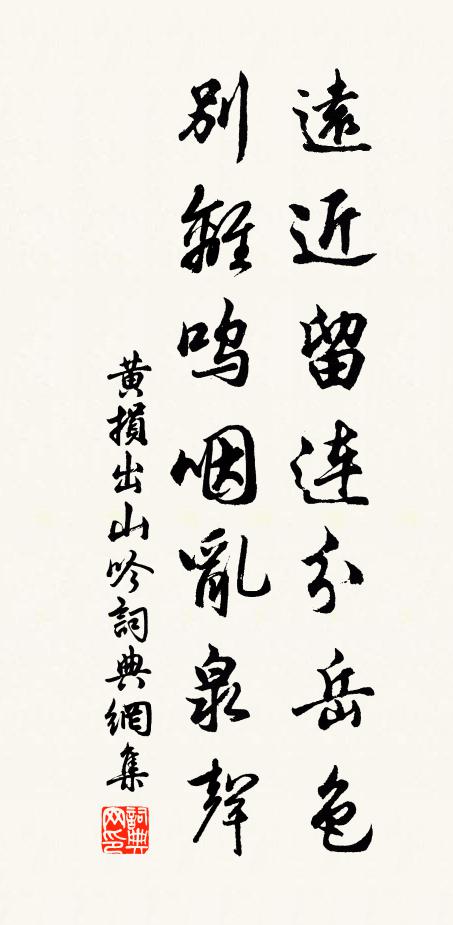 遠近留連分岳色
別離嗚咽亂泉聲
黃損出山吟詞典網集
詞典網印